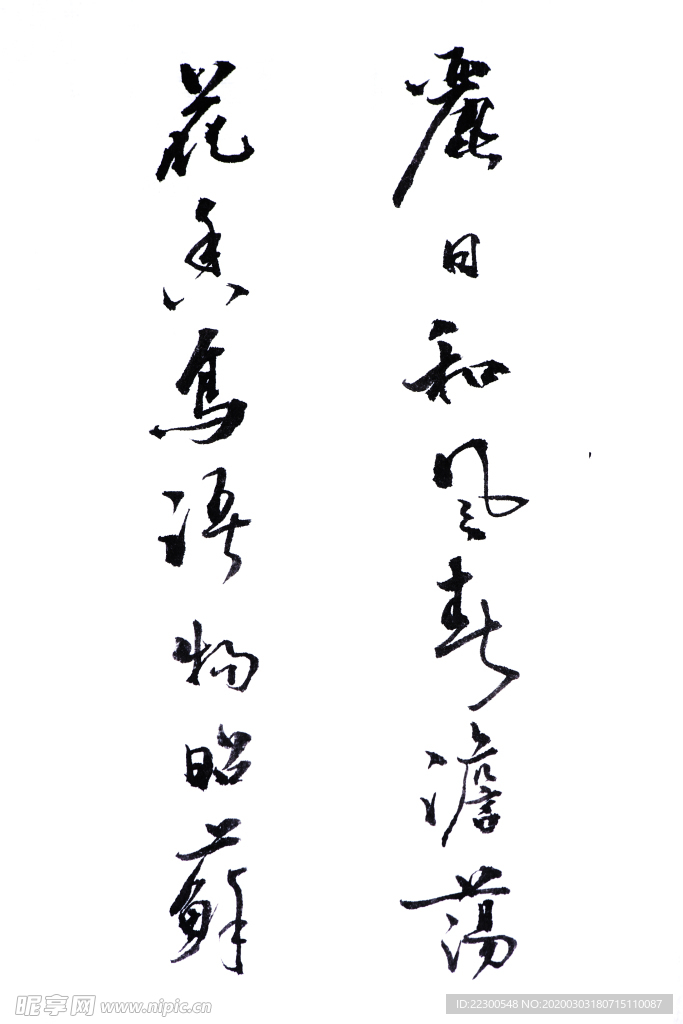 麗日和风春澹蕩
花香鳥語物昭蘇
昵享网 www.nipic.cn
ID:22300548 NO:20200303180715110087